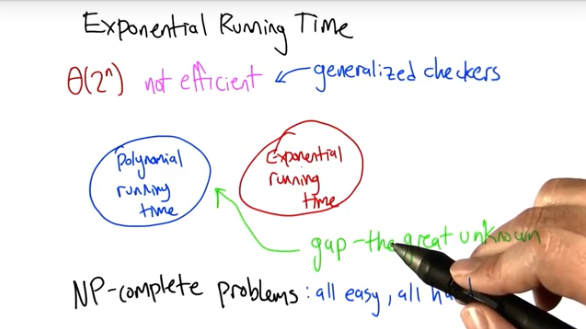 Exponential Running Time
Θ(2ⁿ) not efficient ← generalized checkers
Polynomial
running
time
Exponential
running
time
gap - the great unknown
NP-complete problems: all easy, all